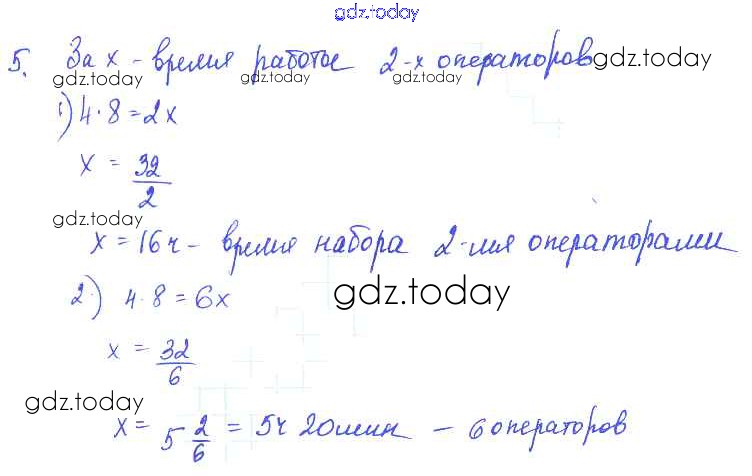 gdz.today
5. За х - время работы 2-х операторов gdz.today
gdz.today gdz.today gdz.today
1) 4·8=2х
х = 32/2
gdz.today
х = 16 ч - время набора 2-мя операторами
2) 4·8=6х gdz.today
х = 32/6
gdz.today
х = 5 2/6 = 5ч 20мин - 6 операторов